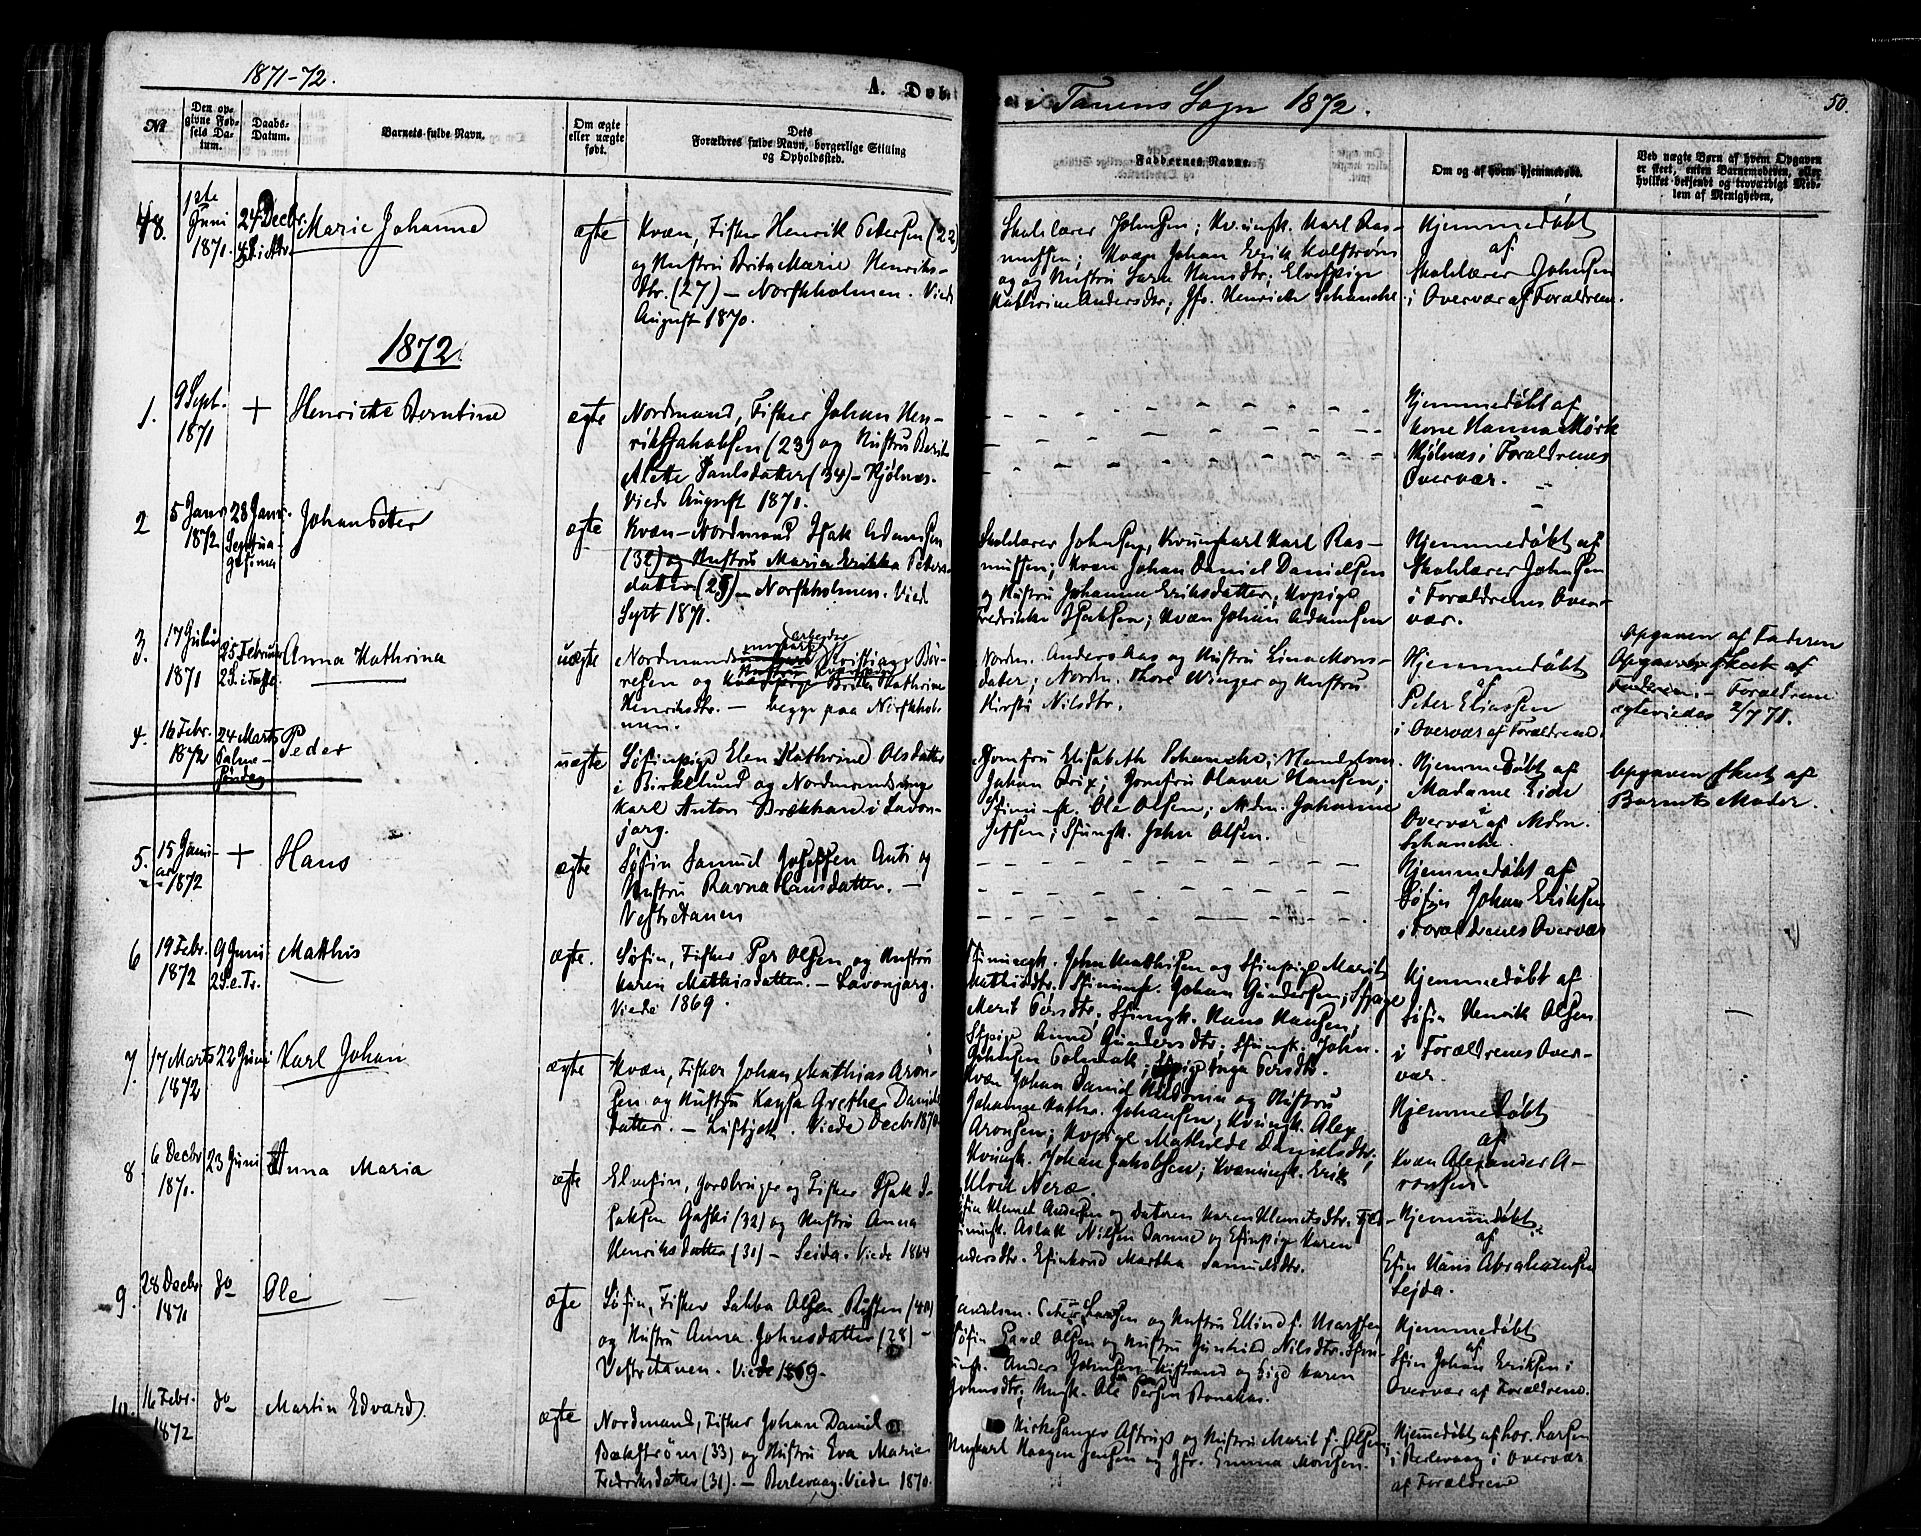 1871-72.
A. Døbt
i Tanens Sogn 1872.
50.
No
Den opgivne Fødsels Datum.
Daabs-Datum.
Barnets fulde Navn.
Om ægte eller uægte født.
Dets Forældres fulde Navn, borgerlige Stilling og Opholdssted.
Faddernes Navne.
Om og af hvem hjemmedøbt.
Ved uægte Børn af hvem Opgaven er skeet, enten Barnemoderen, eller hvilket bekjendt og troværdigt Medlem af Menigheden.
48.
1ste
Juni
1870.
24 Decbr
4 S. i Adv.
Marie Johanne
ægte
Kvæn, Fisker Henrik Petersen (22)
og Hustru Brita Marie Henriks-
dtr. (27) – Norskholmen. Viede
August 1870.
Skolelærer Johnsen; Kv. ungk. Karl Ras-
mussen; Kvæn Johan Erik Kolstrøm
og Hustru Sara Hansdtr; Elvefpige
Kathrine Andersdtr; Jfr. Henriette Schanche.
Hjemmedøbt
af
Skolelærer Johnsen
i Overvær af Forældrene.
1872
1.
9 Sept.
1871
+
Henriette Berntine
ægte
Nordmand, Fisker Johan Hen-
rik Jakobsen (23) og Hustru Berit
Alette Paulsdatter (34) – Kjølnæs.
Viede August 1871.
Hjemmedøbt af
Kone Hanna Mørk
Kjølnæs i Forældrenes
Overvær.
2
5 Janr
1872
28 Janr.
Septua-
gesima
Johan Peter
ægte
Kvæn-Nordmand Isak Adamsen
(32) og Hustru Maria Erikka Peters-
datter (25) – Norskholmen. Viede
Sept 1871.
Skolelærer Johnsen, Kvungkarl Karl Ras-
mussen; Kvæn Johan Daniel Danielsen
og Hustru Johanne Eriksdatter; Kvpige
Fredrikke Isaksen; Kvæn Johan Adamsen
Hjemmedøbt af
Skolelærer Johnsen
i Forældrenes Over-
vær.
3.
17 Juli
1871
25 Februar
2 S. i Faste
Anna Kathrina
uægte
Nordmand arbeider
resen og Kathrine
Henriksdtr. – begge paa Norskhol-
men.
Nordm. Anders Aas og Hustru Lina Mons-
datter; Nordm. Thore Winger og Hustru
Kirsti Nilsdtr.
Hjemmedøbt
af
Peter Eliassen
i Overvær af Forældrene.
Opgaven af Faderen
Opgaven skeet af
Faderen. – Forældrene
ægteviedes 2/7 71.
4.
16 Febr.
1872
24 Marts
Palme-
Søndag
Peder
uægte
Søfinpige Elen Kathrine Olsdatter
i Birkelund og Nordmandsung-
karl Anton Brækhan i Lavon-
jarg.
Jomfru Elisabeth Schanche; Handelsm.
Johan Brix; Jomfru Olava Hansen;
Ole Olsen; Mdm. Johanne
Jessen; Sfungk. John Olsen.
Hjemmedøbt af
Madame Eide
i
Overvær af Mdm.
Schanche.
Opgaven skeet af
Barnets Moder.
5.
15 Janu-
ar
1872
+
Hans
ægte
Søfin Samuel Josefsen Anti og
Hustru Ravna Hansdatter. –
Vestretanen
Hjemmedøbt af
Søfin Johan Eriksen
i Forældrenes Overvær
6
19 Febr.
1872
9 Juni
2 S. e. Tr.
Matthis
ægte.
Søfin, Fisker Per Olsen og Hustru
Karen Mathisdatter. – Lavonjarg.
Viede 1869.
Sfinungk. John Mathisen og Sfinpige Marit
Mathisdtr. Sfinungk. Johan Gundersen; Sfpige
Merit Persdtr; Sfungk. Hans Hansen;
Sfpige Anne Gundersdtr; Sfungk. John
Johnsen Polmak; Sfpige Inga Persdtr.
Hjemmedøbt af
Søfin Henrik Olsen
i Forældrenes Over-
vær.
7.
17 Marts
1872
22 Juni
Karl Johan
ægte
Kvæn, Fisker Johan Matthias Aron-
sen og Hustru Kaysa Grethe Daniels-
datter. – Luftjok. Viede Decbr 1870
Kvæn Johan Daniel og Hustru
Johanne Kathr. Johansen; Kvungk. Alex
Aronsen; Kvpige Mathilde Danielsdtr;
Kvungk. Johan Jakobsen; Kvænungk. Erik
Ulrik Neræ.
Hjemmedøbt
af
Kvæn Alexander A-
ronsen
8
6 Decbr
1871.
23 Juni
Anna Maria
ægte
Elvefin, Jordbruger og Fisker Isak I-
saksen Gaski (32) og Hustru Anna
Henriksdatter (31) – Seida. Viede 1864
Klemet Andersen og Datteren Karen Klemetsdtr.
Aslak Nilsen og Efinpige Karen
Andersdtr. Efinkone Martha Samuelsdtr.
Hjemmedøbt
af
Efin Hans Abrahamsen
Sejda.
9.
28 Decbr
1871
do
Ole
ægte
Søfin, Fisker Sabba Olsen (40)
og Hustru Anna Johnsdatter (28) –
Vestretanen. Viede 1869.
Handelsm. Peter Larsen og Hustru Ellind f. Marssen;
Søfin Pavel Olsen og Hustru Gunhild Nilsdtr. Sfin-
ungk. Anders Johnsen Austrand og Pige Karen
Johnsdtr; Ungk. Ole Persen
Hjemmedøbt
af
Sfin Johan Eriksen i
Overvær af Forældrene.
10.
16 Febr.
1872
do
Martin Edvard
ægte
Nordmand, Fisker Johan Daniel
Bækstrøm (33) og Hustru Eva Marie
Fredriksdatter (31). – Berlevaag. Viede 1870.
Kirkesanger Astrup og Hustru Marit f. Olsen,
Ungkarl Haagen Jensen og Jfr. Emma Monsen.
Hjemmedøbt af Hor. Larsen
i Berlevaag i Overvær
af Forældrene